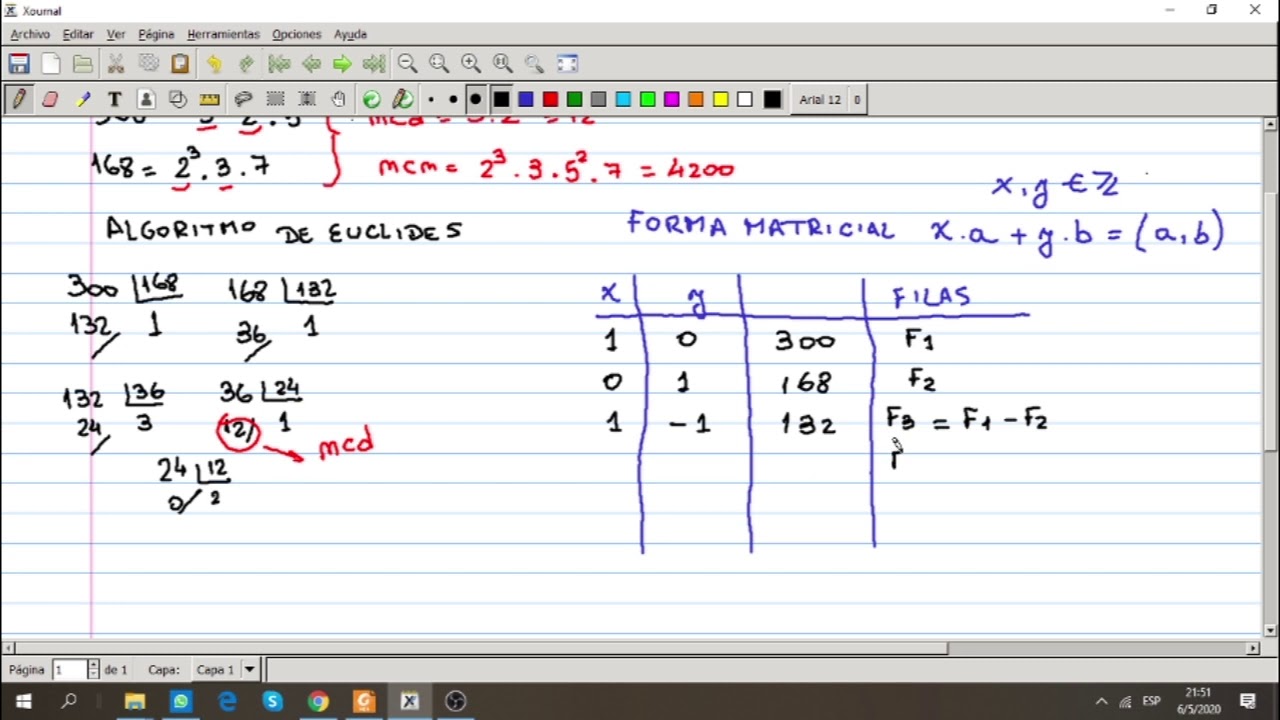 Xournal
Archivo Editar Ver Página Herramientas Opciones Ayuda
Arial 12 0
168 = 2³ . 3 . 7
mcm = 2³ . 3 . 5² . 7 = 4200
x, y ∈ ℤ
ALGORITMO DE EUCLIDES
FORMA MATRICIAL x.a + y.b = (a,b)
300 168
132 1
168 132
36 1
132 36
24 3
36 24
12 1
mcd
24 12
0 2
x y FILAS
1 0 300 F1
0 1 168 F2
1 -1 132 F3 = F1 - F2
Página 1 de 1 Capa: Capa 1
ESP 21:51
6/5/2020